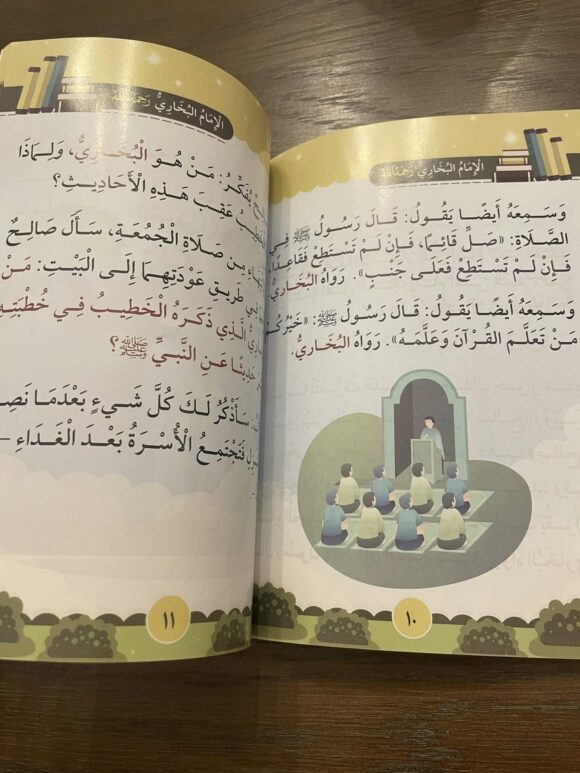 الْإِمَامُ الْبُخَارِيُّ رَحِمَهُ اللهُ
وَسَمِعَهُ أَيْضًا يَقُولُ: قَالَ رَسُولُ ﷺ فِي
الصَّلَاةِ: «صَلِّ قَائِمًا، فَإِنْ لَمْ تَسْتَطِعْ فَقَاعِدًا،
فَإِنْ لَمْ تَسْتَطِعْ فَعَلَى جَنْبٍ». رَوَاهُ الْبُخَارِيُّ
وَسَمِعَهُ أَيْضًا يَقُولُ: قَالَ رَسُولُ ﷺ: «خَيْرُكُمْ
مَنْ تَعَلَّمَ الْقُرْآنَ وَعَلَّمَهُ». رَوَاهُ الْبُخَارِيُّ.
١٠
الْإِمَامُ الْبُخَارِيُّ رَحِمَهُ اللهُ
يُفَكِّرُ: مَنْ هُوَ الْبُخَارِيُّ، وَلِمَاذَا
عَقِبَ هَذِهِ الْأَحَادِيثِ؟
مِنْ صَلَاةِ الْجُمُعَةِ، سَأَلَ صَالِحٌ
طَرِيقِ عَوْدَتِهِمَا إِلَى الْبَيْتِ: مَنْ
الَّذِي ذَكَرَهُ الْخَطِيبُ فِي خُطْبَتِهِ
حَدِيثًا عَنِ النَّبِيِّ ﷺ؟
سَأَذْكُرُ لَكَ كُلَّ شَيْءٍ بَعْدَمَا
فَتَجْتَمِعُ الْأُسْرَةُ بَعْدَ الْغَدَاءِ –
١١